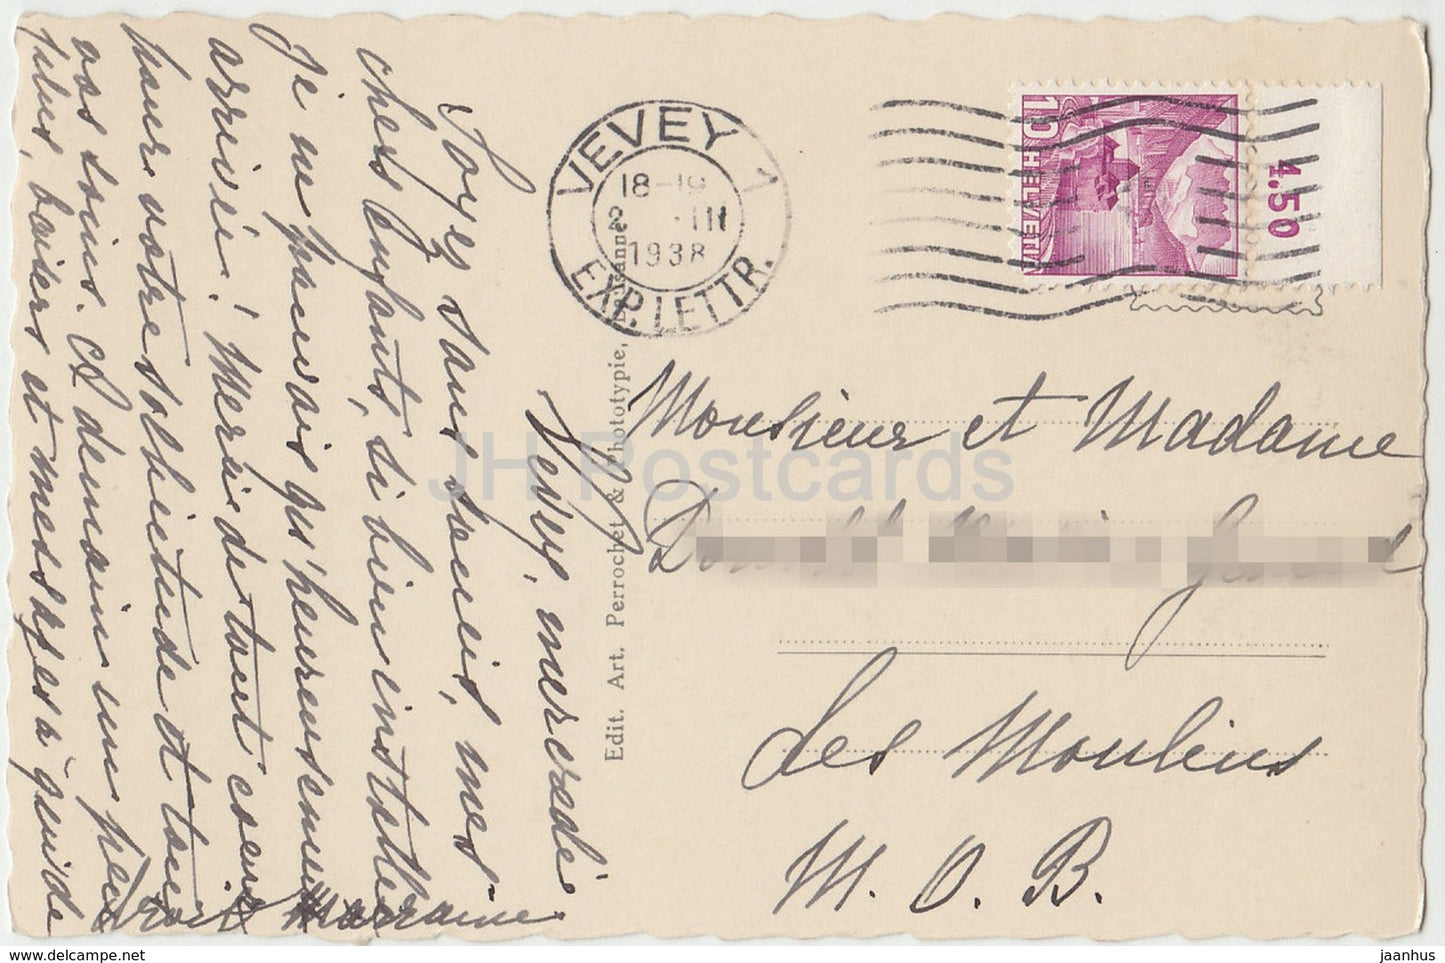 Vevey, mercredi
Soyez sans soucis, mes
chers enfants, si bien installée
je ne pouvais qu'heureusement
arriver! Merci de tout coeur
pour votre sollicitude et tous
vos soins. A demain un peu
plus, baisers et messages à
Marraine
VEVEY 1
18-19
III
1938
EXP. LETTR.
10 HELVETIA
4.50
Edit. Art. Perrochet & Phototypie,
Monsieur et Madame
Les Moulins
M. O. B.
JH Postcards
https://www.delcampe.net
jaanhus